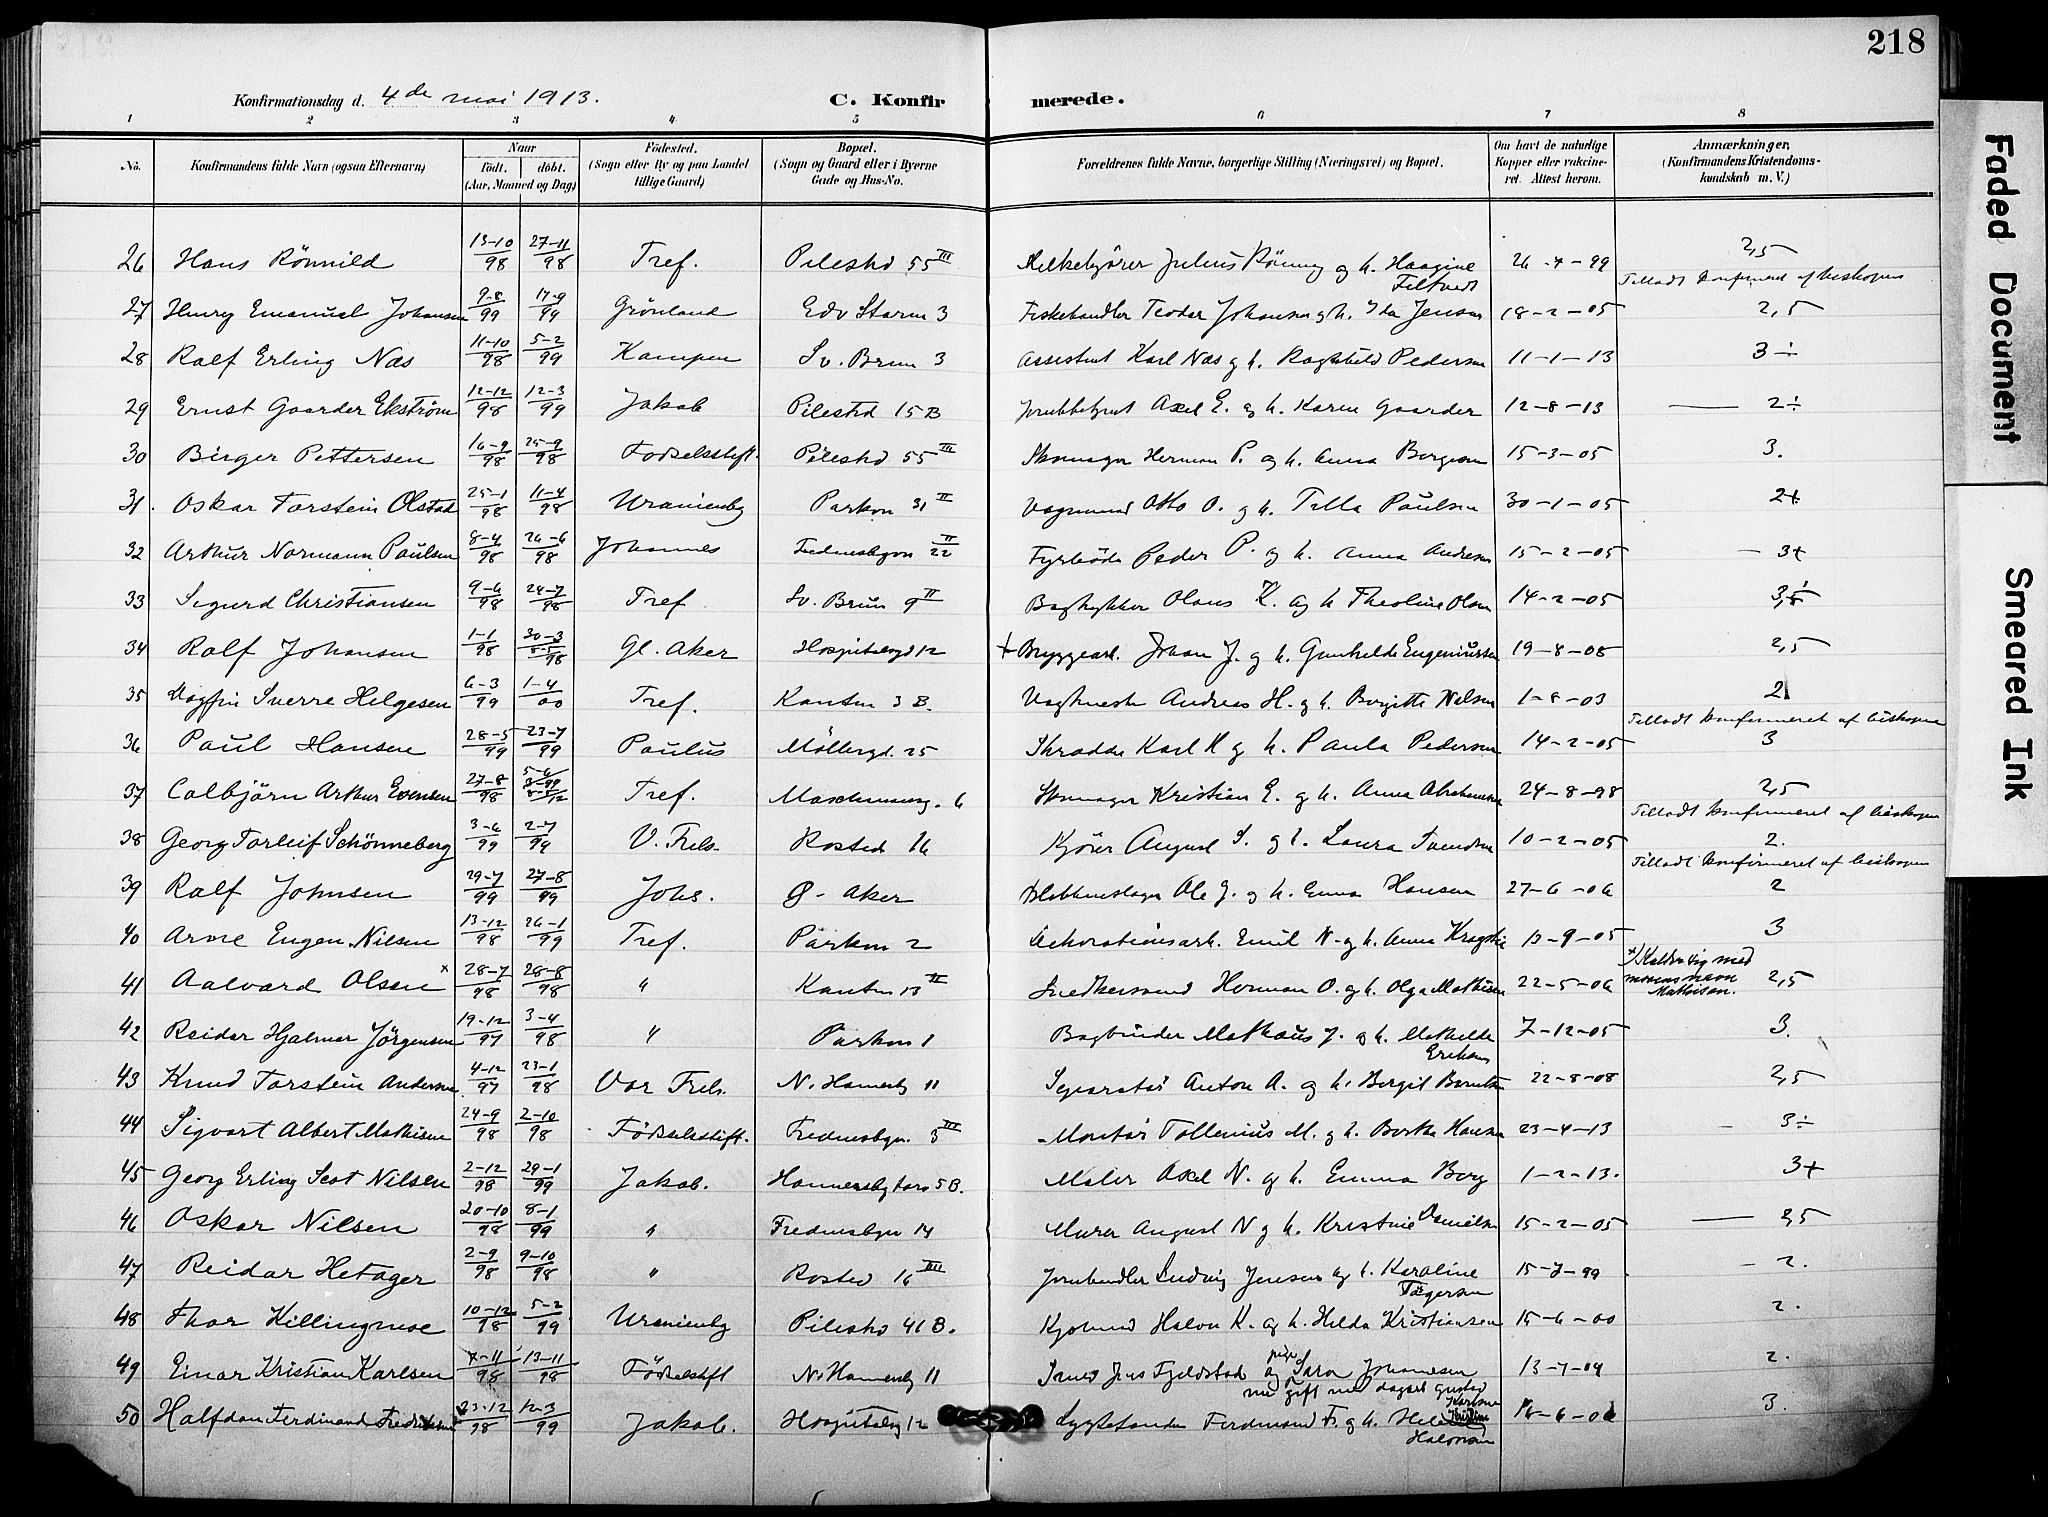 218
Konfirmationsdag d. 4de mai 1913. C. Konfirmerede.
1 2 3 4 5 6 7 8
No. Konfirmandens fulde Navn (ogsaa Efternavn) Naar födt. döbt. (Aar, Maaned og Dag) Födested. (Sogn eller By og paa Landet tillige Gaard) Bopæl. (Sogn og Gaard eller i Byerne Gade og Hus-No. Forældrenes fulde Navne, borgerlige Stilling (Næringsvei) og Bopæl. Om havt de naturlige Kopper eller vakcineret. Attest herom. Anmærkninger, (Konfirmandens Kristendomskundskab m. V.)
26 Hans Rönnild 13-10/98 27-11/98 Tref. Pilestrd 55 III Melkekjörer Julius Rönning og h. Haagine Filtvedt 26-4-99 2,5
Tilladt konfirmeret af biskopen
27 Henry Emanuel Johansen 9-8/99 17-9/99 Grönland Edv Storm 3 Fiskehandler Teodor Johansen og h. Ida Jensen 18-2-05 2,5
28 Ralf Erling Næs 11-10/98 5-2/99 Kampen Sv. Brun 3 Assistent Karl Næs og h. Ragnhild Pedersen 11-1-13 3÷
29 Ernst Gaarder Ekström 12-12/98 12-3/99 Jakob Pilestrd 15 B Axel E. og h. Karen Gaarder 12-8-13 — 2÷
30 Birger Pettersen 16-9/98 25-9/98 Födselsstift. Pilestrd 55 III Skomager Herman P. og h. Anna Borgesen 15-3-05 3.
31. Oskar Torstein Olstad 25-1/98 11-4/98 Uranienbg Parkvn 31 II Vognmand Otto O. og h. Tilla Paulsen 30-1-05 2+
32 Arthur Normann Paulsen 8-4/98 26-6/98 Johannes Fredensbgvn 22 II Fyrböder Peder P. og h. Anna Andresen 15-2-05 — 3+
33 Sigurd Christiansen 9-6/98 24-7/98 Tref. Sv. Brun 9 II Bogtrykker Olaus K. og h Theoline Olsen 14-2-05 3,5
34 Ralf Johansen 1-1/98 30-3/98 Gl. Aker Hospitalsgd 12 + Bryggearb. Johan J. og h. Gunhilde Eugeniussen 19-8-08 2,5
35 Magfin Sverre Helgesen 6-3/99 1-4/00 Tref. Kantin 3 B. Vagtmester Andreas H. og h. Birgitte Nilsen 1-8-03 2
Tilladt konfirmeret af biskopen
36 Paul Hansen 28-5/99 23-7/99 Paulus Möllergd. 25 Skrædder Karl H og h. Paula Pedersen 14-2-05 3
37 Colbjörn Arthur Evensen 27-8/98 Tref. Maschmanng. 6 Skomager Kristian E. og h. Anna Abrahamsen 24-8-98 2,5
Tilladt konfirmeret af biskopen
38 Georg Torleif Schönneberg 3-6/99 2-7/99 V. Frels. Rosted 16 Kjörer August S. og h. Laura Svendsen 10-2-05 2.
Tilladt konfirmeret af biskopen
39 Ralf Johnsen 29-7/99 27-8/99 Johs. Ø-Aker Blikkenslager Ole J. og h. Emma Hansen 27-6-06 2
40 Arne Eugen Nilsen 13-12/98 26-1/99 Tref. Parkvn 2 Dekorationsarb. Emil N. og h. Anna 13-9-05 3
41 Aalvard Olsen x 28-7/98 28-8/98 " Kantin 13 II Snedkersvend Herman O. og h. Olga Mathisen 22-5-06 x) Kalder sig med morens navn Mathisen. 2,5
42 Reidar Hjalmar Jörgensen 19-12/97 3-4/98 " Parkvn 1 Bogbinder Mathæus J. og h. Mathilde Eriksen 7-12-05 3.
43 Knud Torstein Andersen 4-12/97 23-1/98 Vor Frels. N. Hamersbg 11 Separatör Anton A. og h. Bergit Berntsen 22-8-08 2,5
44 Sigvart Albert Mathisen 24-9/98 2-10/98 Födselsstift. Fredensbgvn. 3 III Montör Tollenius M. og h. Berthe Hansen 23-4-13 — 3÷
45 Georg Erling Scot Nilsen 2-12/98 29-1/99 Jakob. Hammersbg torv 5B. Maler Axel N. og h. Emma Berg 1-2-13. 3+
46 Oskar Nilsen 20-10/98 8-1/99 " Fredensbgvn 14 Murer August N og h. Kristine Danielsen 15-2-05 — 2,5
47 Reidar Hetager 2-9/98 9-10/98 " Rosted 16 III Jernhandler Ludvig Jensen og h. Karoline Tögersen 15-7-99 — 2.
48 Thor Killingmoe 10-12/98 5-2/99 Uranienbg Pilestrd 41 B. Halvor K. og h. Helda Kristiansen 15-6-00 2.
49 Einar Kristian Karlsen 7-11/98 13-11/98 Födselsstift N. Hamersbg 11 Smed Jens Fjeldstad og pige Sara Johannesen 13-7-04 2.
nu gift med dagarb Gustad Karlsen
50 Halfdan Ferdinand Fredriksen 23-12/98 12-3/99 Jakob. Hospitalsg 12 Lygtetænder Ferdinand F. og h. Helene Kristine Halvorsen 16-6-06 3.
Faded Document
Smeared Ink